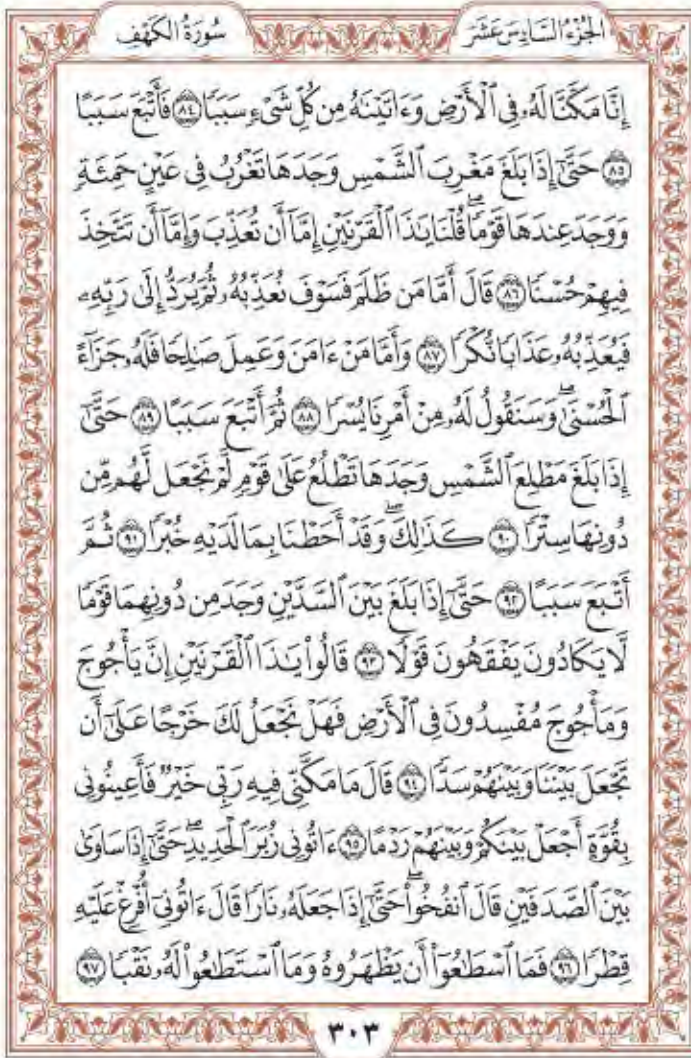 الجُزْءُ السَّادِسَ عَشَرَ سُورَةُ الكَهْفِ
إِنَّا مَكَّنَّا لَهُۥ فِي ٱلْأَرْضِ وَءَاتَيْنَٰهُ مِن كُلِّ شَيْءٖ سَبَبٗا ٨٤ فَأَتْبَعَ سَبَبًا
٨٥ حَتَّىٰٓ إِذَا بَلَغَ مَغْرِبَ ٱلشَّمْسِ وَجَدَهَا تَغْرُبُ فِي عَيْنٍ حَمِئَةٖ
وَوَجَدَ عِندَهَا قَوْمٗاۖ قُلْنَا يَٰذَا ٱلْقَرْنَيْنِ إِمَّآ أَن تُعَذِّبَ وَإِمَّآ أَن تَتَّخِذَ
فِيهِمْ حُسْنٗا ٨٦ قَالَ أَمَّا مَن ظَلَمَ فَسَوْفَ نُعَذِّبُهُۥ ثُمَّ يُرَدُّ إِلَىٰ رَبِّهِۦ
فَيُعَذِّبُهُۥ عَذَابٗا نُّكْرٗا ٨٧ وَأَمَّا مَنْ ءَامَنَ وَعَمِلَ صَٰلِحٗا فَلَهُۥ جَزَآءً
ٱلْحُسْنَىٰۖ وَسَنَقُولُ لَهُۥ مِنْ أَمْرِنَا يُسْرٗا ٨٨ ثُمَّ أَتْبَعَ سَبَبًا ٨٩ حَتَّىٰٓ
إِذَا بَلَغَ مَطْلِعَ ٱلشَّمْسِ وَجَدَهَا تَطْلُعُ عَلَىٰ قَوْمٖ لَّمْ نَجْعَل لَّهُم مِّن
دُونِهَا سِتْرٗا ٩٠ كَذَٰلِكَۖ وَقَدْ أَحَطْنَا بِمَا لَدَيْهِ خُبْرٗا ٩١ ثُمَّ
أَتْبَعَ سَبَبًا ٩٢ حَتَّىٰٓ إِذَا بَلَغَ بَيْنَ ٱلسَّدَّيْنِ وَجَدَ مِن دُونِهِمَا قَوْمٗا
لَّا يَكَادُونَ يَفْقَهُونَ قَوْلٗا ٩٣ قَالُواْ يَٰذَا ٱلْقَرْنَيْنِ إِنَّ يَأْجُوجَ
وَمَأْجُوجَ مُفْسِدُونَ فِي ٱلْأَرْضِ فَهَلْ نَجْعَلُ لَكَ خَرْجًا عَلَىٰٓ أَن
تَجْعَلَ بَيْنَنَا وَبَيْنَهُمْ سَدّٗا ٩٤ قَالَ مَا مَكَّنِّي فِيهِ رَبِّي خَيْرٞ فَأَعِينُونِي
بِقُوَّةٍ أَجْعَلْ بَيْنَكُمْ وَبَيْنَهُمْ رَدْمًا ٩٥ ءَاتُونِي زُبَرَ ٱلْحَدِيدِۖ حَتَّىٰٓ إِذَا سَاوَىٰ
بَيْنَ ٱلصَّدَفَيْنِ قَالَ ٱنفُخُواْۖ حَتَّىٰٓ إِذَا جَعَلَهُۥ نَارٗا قَالَ ءَاتُونِيٓ أُفْرِغْ عَلَيْهِ
قِطْرٗا ٩٦ فَمَا ٱسْطَٰعُوٓاْ أَن يَظْهَرُوهُ وَمَا ٱسْتَطَٰعُواْ لَهُۥ نَقْبٗا ٩٧
٣٠٣